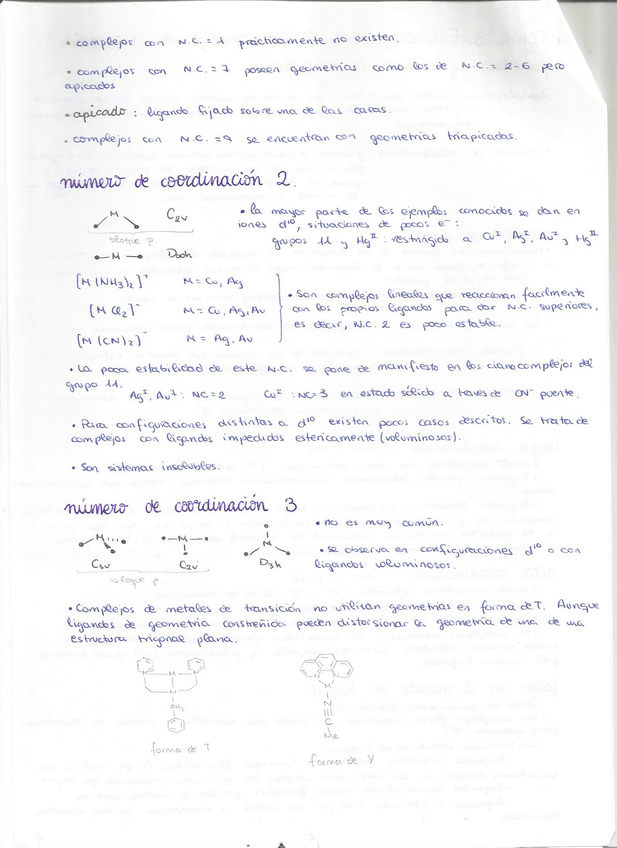 • complejos con N.C. = 1 prácticamente no existen.
• complejos con N.C. = 7 poseen geometrías como los de N.C. = 2-6 pero
apicados
• apicado : ligando fijado sobre una de las caras.
• complejos con N.C. = 9 se encuentran con geometrías triapicadas.
número de coordinación 2.
M C2v
bloque p
M D∞h
• la mayor parte de los ejemplos conocidos se dan en
iones d¹⁰, situaciones de pocos e⁻:
grupos 11 y Hg^II : restringido a Cu^I, Ag^I, Au^I y Hg^II
[M(NH3)2]⁺ M = Cu, Ag
[MCl2]⁻ M = Cu, Ag, Au
[M(CN)2]⁻ M = Ag, Au
• Son complejos lineales que reaccionan facilmente
con los propios ligandos para dar N.C. superiores,
es decir, N.C. 2 es poco estable.
• La poca estabilidad de este N.C. se pone de manifiesto en los cianocomplejos del
grupo 11.
Ag^I, Au^I : NC = 2 Cu^I : NC = 3 en estado sólido a traves de CN⁻ puente.
• Para configuraciones distintas a d¹⁰ existen pocos casos descritos. Se trata de
complejos con ligandos impedidos estericamente (voluminosos).
• Son sistemas insolubles.
número de coordinación 3
M M M
C3v C2v D3h
bloque p
• no es muy común.
• se observa en configuraciones d¹⁰ o con
ligandos voluminosos.
• Complejos de metales de transición no utilizan geometrias en forma de T. Aunque
ligandos de geometría constreñida pueden distorsionar la geometría de una de una
estructura trigonal plana.
N M N
N
CH2
forma de T
N N
M
N
C
Me
forma de Y